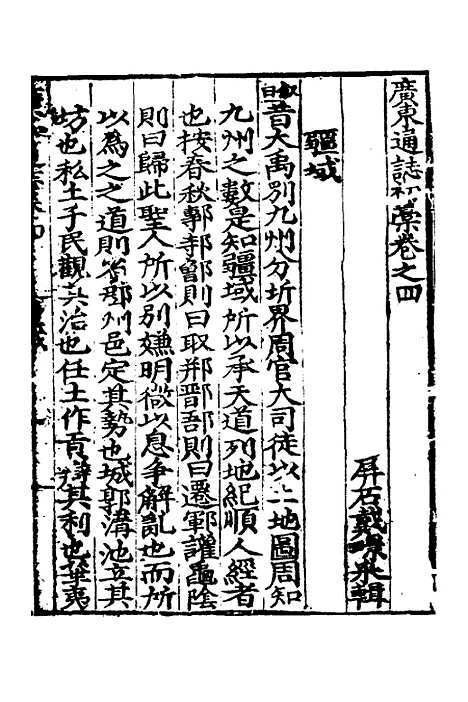 廣東通誌初藁卷之四
屏石戴璟永輯
疆域
叙曰昔大禹別九州分圻界周官大司徒以土地圖周知
九州之數是知疆域所以承天道列地紀順人經者
也按春秋郭邿鄫鄅則曰取郱鄑郚則曰遷鄆讙龜陰
則曰歸此聖人所以別嫌明微以息爭解亂也而所
以為之之道則省郡州邑定其勢也城郭溝池立其
坊也私土子民觀其治也任土作貢辨其利也華夷